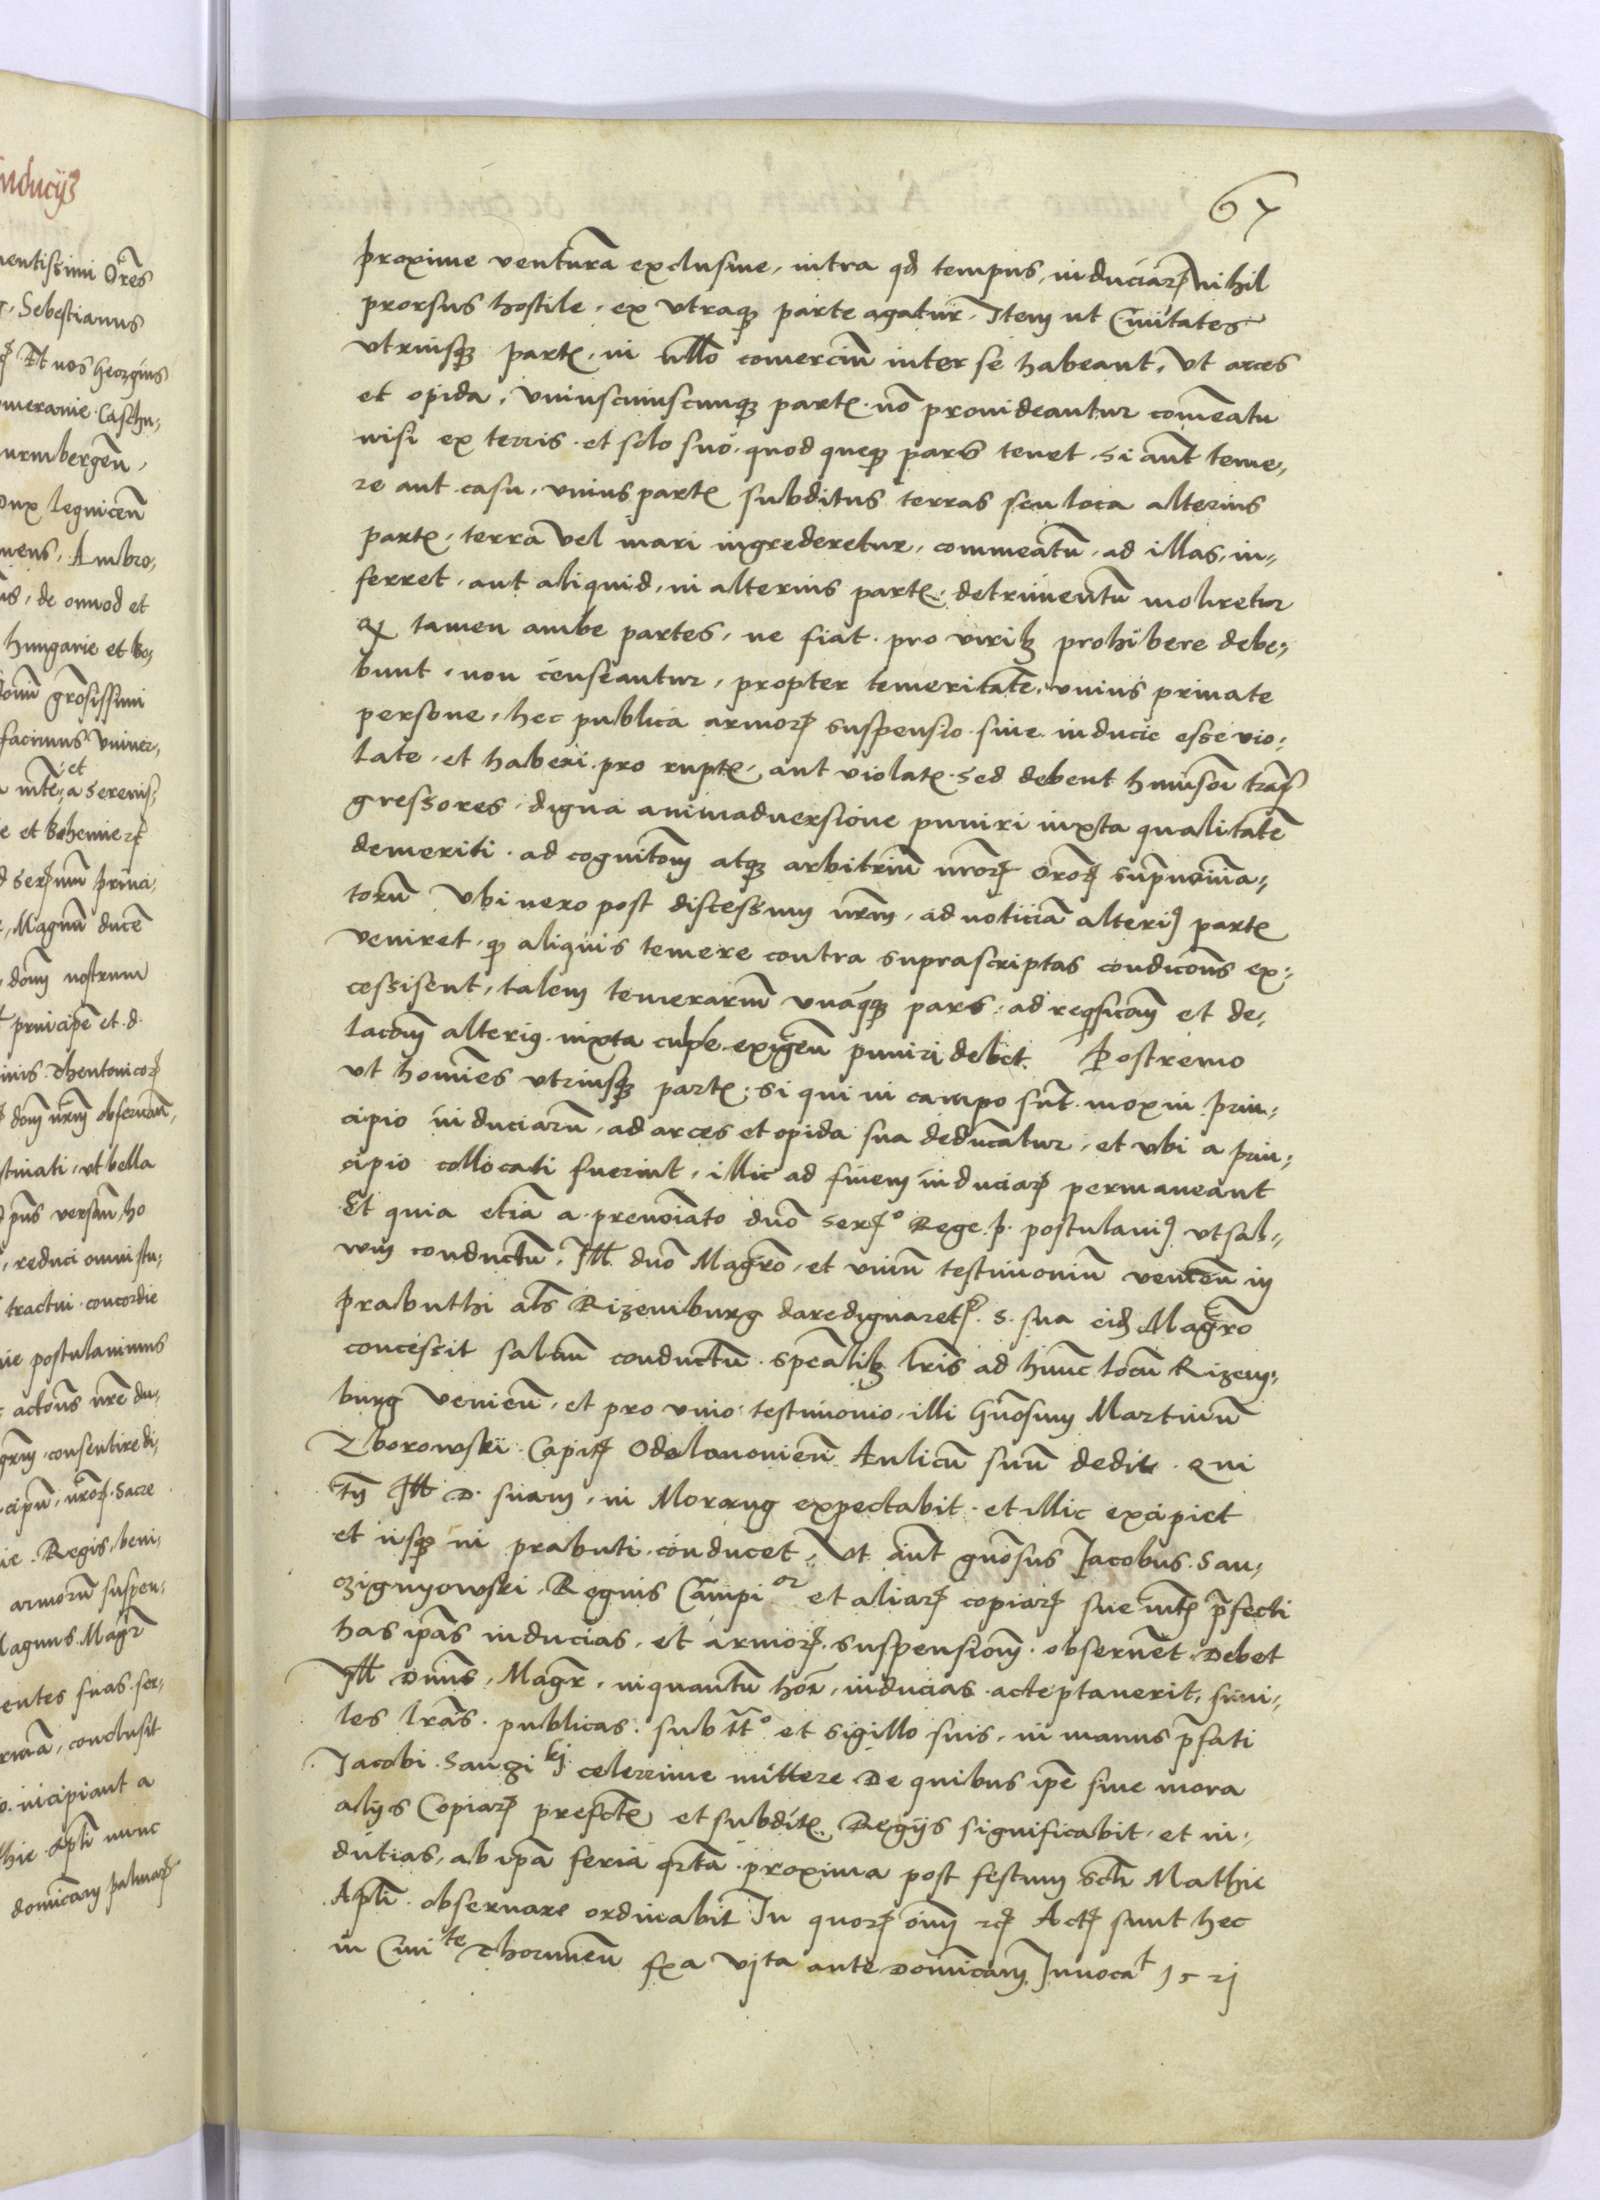 inducijs
mentissimi Ores
Sebestianus
Et nos Georgius
omeranie Caschu,
urmbergen,
Dux legnicen
Ambro,
de omod et
hungarie et bo,
grosissimi
facimus univer,
et
a serenis,
e et bohemie
princi,
Magnum ducem
domini nostrum
principe et d.
Theutonicor
dom nrm observan,
stinati, ut bella
pns versan, ho
reduci omni stu,
tractui concordie
nie postulavimus
actons nre du,
consentire di,
cipu, nror. Sacre
ie Regis, beni,
armorum suspen,
Magnus Magr
entes suas ser,
conclusit
incipiant a
thie Apli nunc
dominicam palmar
67
proxime ventura exclusive, intra qd tempus, induciar nihil
prorsus hostile, ex utraque parte agatur. Item ut Civitates
utriusque partis, in nullo comercium inter se habeant, ut arces
et opida, uniuscuiuscunque partis non provideantur comeatu
nisi ex terris et solo suo, quod queque pars tenet. Si aut teme,
re aut casu, unius partis subditus terras seu loca alterius
partis, terra vel mari ingrederetur, commeatum, ad illas, in,
ferret, aut aliquid, in alterius partis, detrimentum moliretur
qd tamen ambe partes, ne fiat pro virib prohibere debe,
bunt, non censeantur, propter temeritatem unius private
persone, hec publica armor suspensio sive inducie esse vio,
late, et haberi pro ruptis, aut violatis. Sed debent huiusmodi trans
gressores, digna animadversione puniri iuxta qualitatem
demeriti, ad cognitom atque arbitrium nror Oror supnoina,
torum Ubi vero post discessum nrm, ad noticiam alterius partis
veniret, quod aliquis temere contra suprascriptas condicons ex,
cessisent, talem temerarium unaqueque pars, ad requisicom et de,
lacom alterius iuxta culpe exigen puniri debet. Postremo
ut homines utriusque partis, si qui in campo sunt, mox in prin,
cipio induciarum, ad arces et opida sua deducatur, et ubi a prin,
cipio collocati fuerint, illic ad finem induciar permaneant
Et quia etiam a prenoiato dno Sermo Rege p. postulavimus ut sal,
vum conductum, Ill. dno Magro, et unum testimonium venien in
prabuthi als Rizemburg dare dignaretur. S. sua eid Magro
concessit salvum conductum spealib lris ad hunc locum Rizem,
burg venien, et pro vivo testimonio, illi Gnosum Martinum
Zborowski Capit Odolonovien Aulicum suum dedit. Qui
tn Ill D. suam, in Morung expectabit et illic excipiet
et usque in prabuti conducet, Ut aut gnosus Jacobus San,
czignyowski Regnis Campi or et aliar copiar sue mtis prefecti
has ipas inducias, et armor suspensionem observet. Debet
Ill Dnus, Magr, inquantum hor, inducias acceptaverit, simi,
les lras publicas sub tto et sigillo suis, in manus prefati
Jacobi Sangi kj celerrime mittere De quibus ipe sine mora
alijs Copiar prefectis et subditis Regijs significabit, et in,
dutias, ab ipa feria qrta proxima post festum scti Mathie
Apli observare ordinabit In quor oim rei Acta sunt hec
in Civi te Thorunien fxa vjta ante Dominicam Invocat 1521